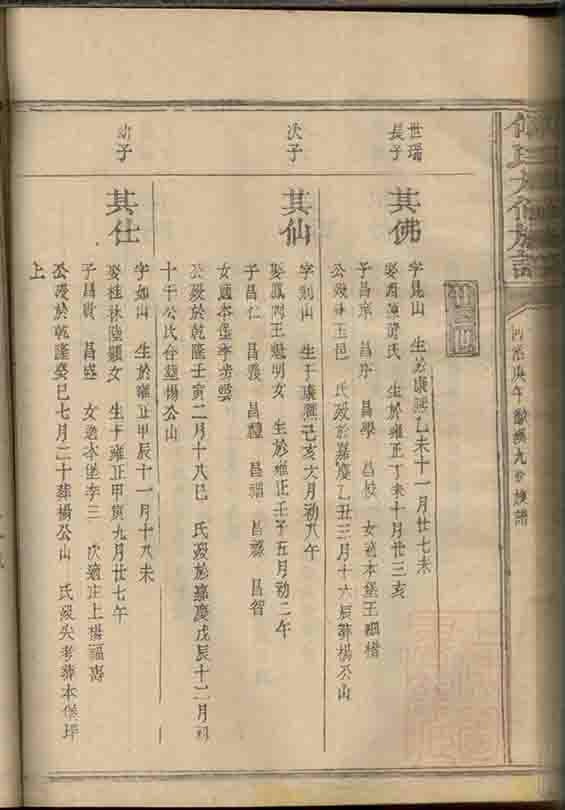 氏九修族譜
同治庚午 九修族譜
世瑞長子
其佛
字崑山 生於康熙乙未十一月廿七未
娶 氏 生於雍正丁未十月廿三亥
子昌宗 昌序 昌學 昌校 女適本堡王
公歿 玉邑 氏歿於嘉慶乙丑三月十六辰葬楊公山
次子
其仙
字 山 生于康熙己亥六月初八午
娶鳳 王魁明女 生於雍正壬子五月初二午
子昌仁 昌義 昌禮 昌福 昌祿 昌智
女適本堡李
公歿於乾隆壬寅二月十八巳 氏歿於嘉慶戊辰十二月初
十午公氏合墓楊公山
幼子
其仕
字如山 生於雍正甲辰十一月十八未
娶桂林陸 女 生于雍正甲寅九月廿七午
子昌貴 昌盛 女適本堡李三 次適庄上楊福壽
公歿於乾隆癸巳七月二十葬楊公山 氏歿失考葬本堡坪
上